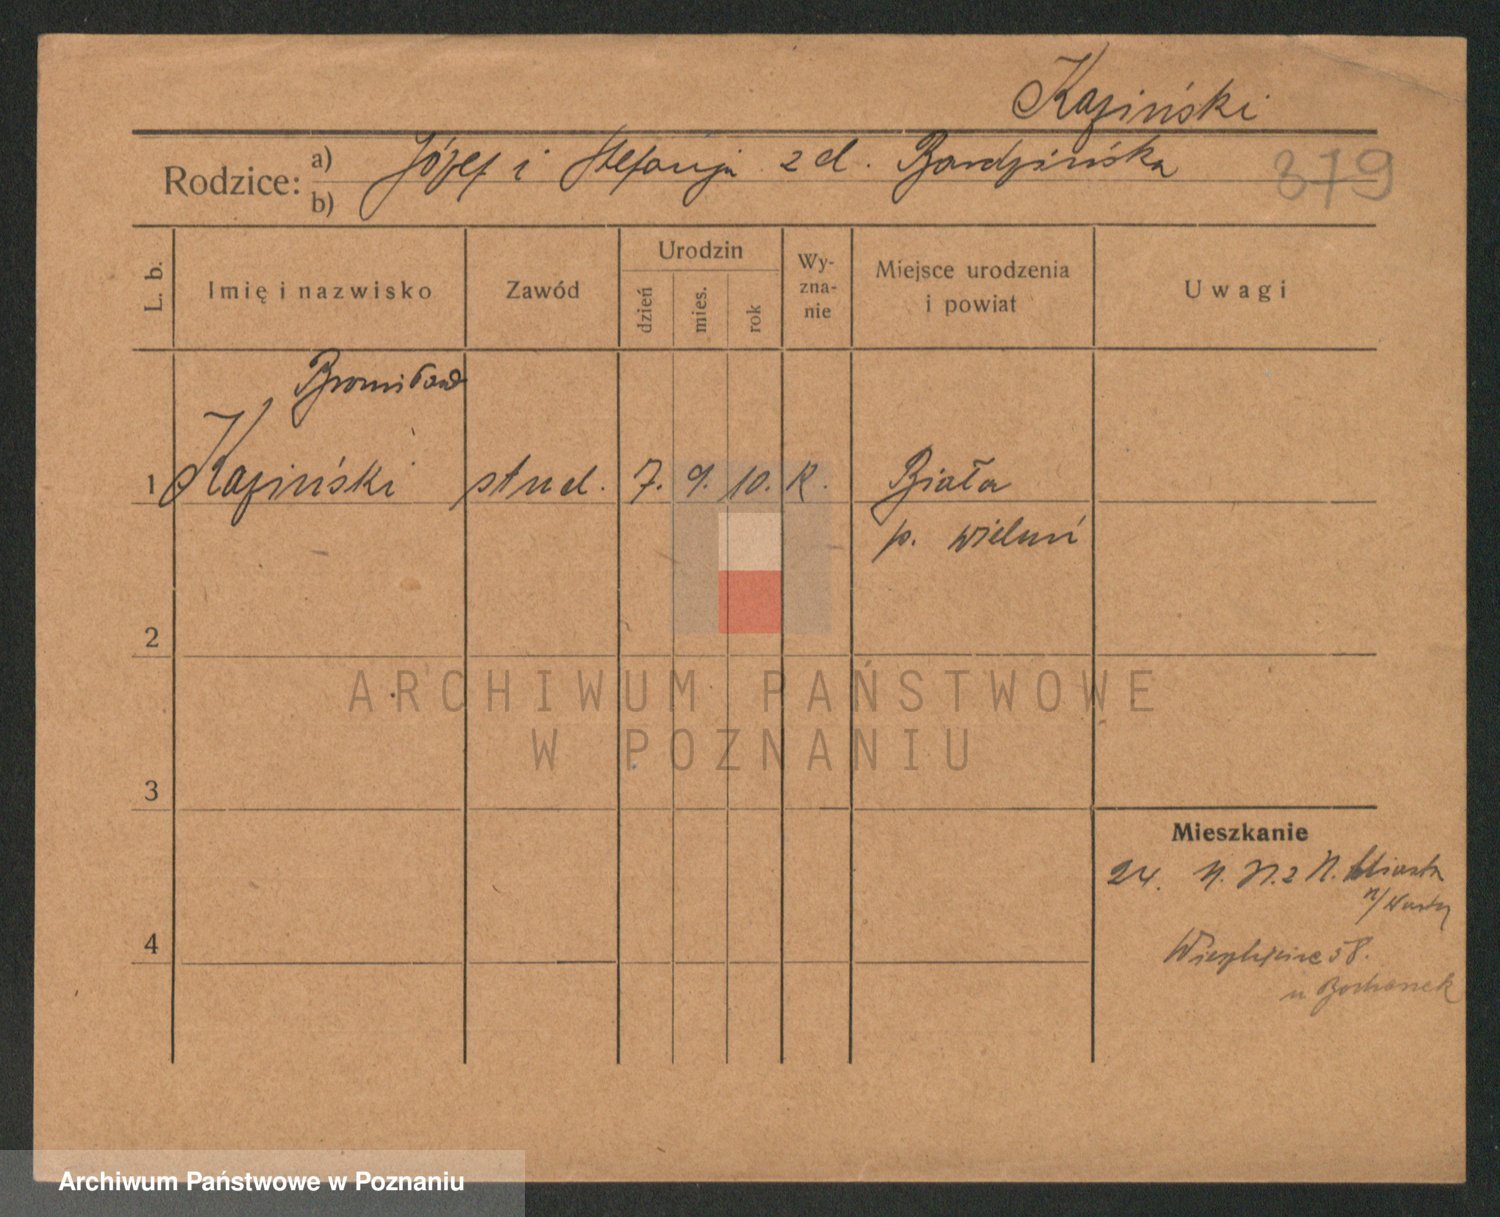 Kaziński
Rodzice: a) Józef i Stefanja z d. Bardzińska 379
b)
L. b. Imię i nazwisko Zawód Urodzin dzień mies. rok Wyznanie Miejsce urodzenia i powiat Uwagi
Bronisław
1 Kaziński stud. 7. 9. 10. R. Biała
p. wieluń
2
ARCHIWUM PAŃSTWOWE
W POZNANIU
3
Mieszkanie
24. z N. Miasta
n/Wartą
4
58.
u
Archiwum Państwowe w Poznaniu